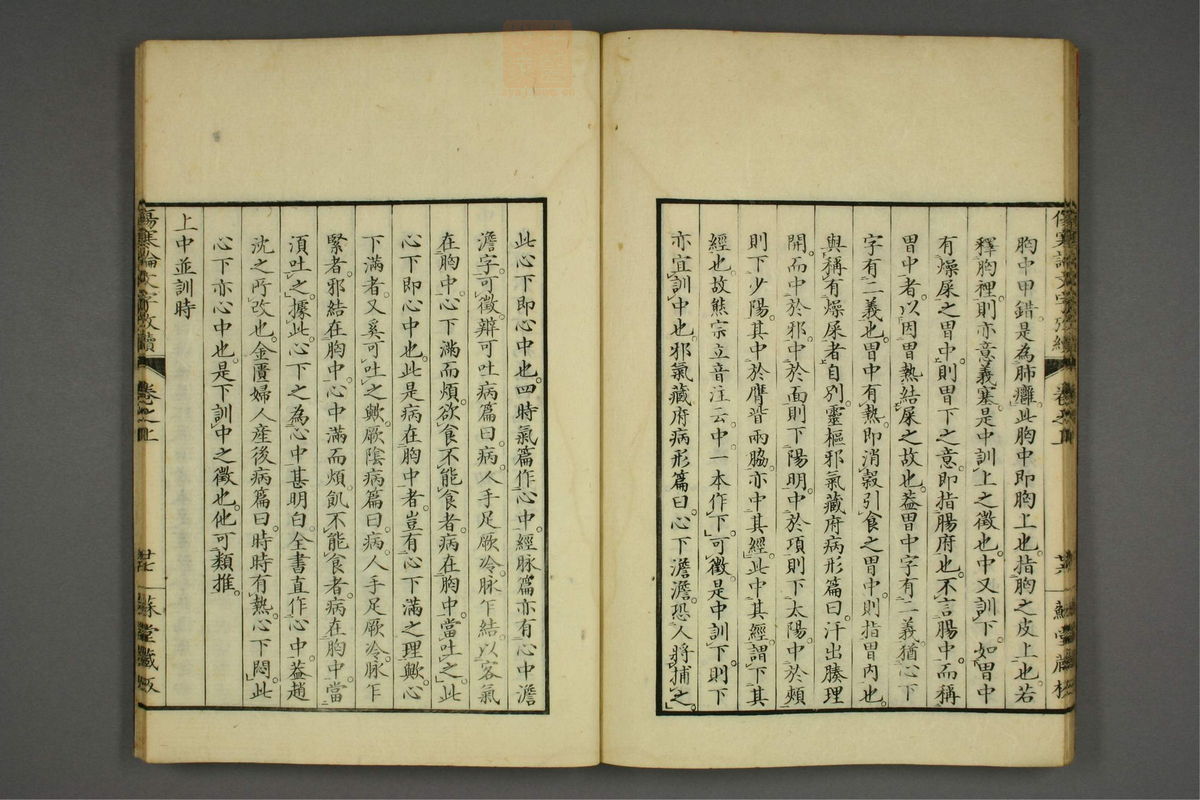 胸中甲錯。是為肺癰。此胸中即胸上也。指胸之皮上也。若
釋胸裡。則亦意義塞。是中訓上之徵也。中又訓下。如胃中
有燥屎之胃中。則胃下之意。即指腸府也。不言腸中。而稱
胃中者。以因胃熱結屎之故也。蓋胃中字有二義。猶心下
字有二義也。胃中有熱。即消穀引食之胃中。則指胃内也。
與稱有燥屎者自別。靈樞邪氣藏府病形篇曰。汗出腠理
開。而中於邪。中於面則下陽明。中於項則下太陽。中於頰
則下少陽。其中於膺背兩脇。亦中其經。此中其經。謂下其
經也。故熊宗立音注云。中一本作下。可徵。是中訓下。則下
亦宜訓中也。邪氣藏府病形篇曰。心下澹澹。恐人將捕之。
此心下即心中也。四時氣篇作心中。經脉篇亦有心中澹
澹字。可徵。辯可吐病篇曰。病人手足厥冷。脉乍結。以客氣
在胸中。心下滿而煩。欲食不能食者。病在胸中。當吐之。此
心下即心中也。此是病在胸中者。豈有心下滿之理歟。心
下滿者。又奚可吐之歟。厥陰病篇曰。病人手足厥冷。脉乍
緊者。邪結在胸中。心中滿而煩。飢不能食者。病在胸中。當
須吐之。據此。心下之為心中甚明白。全書直作心中。蓋趙
沈之所改也。金匱婦人産後病篇曰。時時有熱。心下悶。此
心下亦心中也。是下訓中之徵也。他可類推。
上中並訓時
傷寒論文字攷續
卷之上
廿一
蘇堂藏版